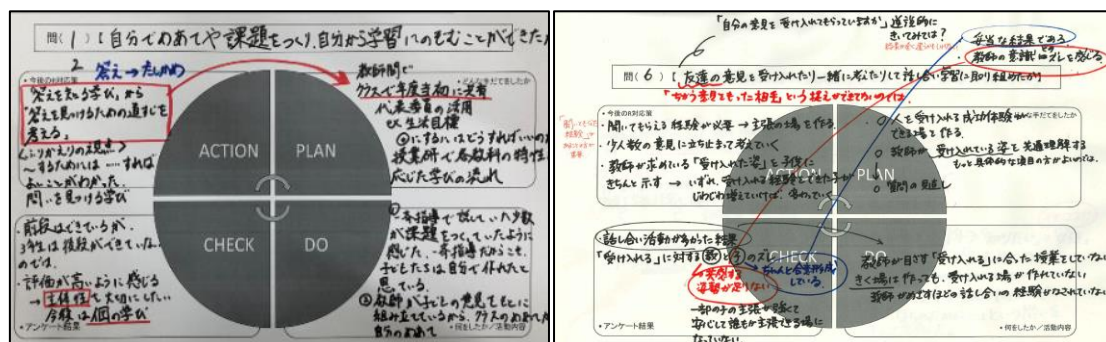 問( 1 )【自分でめあてや課題をつくり、自分から学習にのぞむことができた
答え→たしかめ
2
・今後の対応策
"答えを見る学び"から
"答えを見つけるための道すじを
考える"
<ふりかえりの視点>
~するためには……すれば
よいことがわかった。
問いを見つける学び
教師間で
・どんな手だてをしたか
クラスで年度当初に共有
代表委員の活用
ex 生活目標
④にするにはどうすればいいのか
授業研で各教科の特性に
応じた学びの流れ
ACTION
PLAN
CHECK
DO
・前段はできているが、
3年生は後段ができていない
のでは。
・評価が高いように感じる
→主体性も大切にしたい
今後は個の学び
・アンケート結果
子どもたちは自分で作れたと
思っている。
②教師が子どもの意見をもとに
組み立てているから、クラスのめあてが
自分のめあて
・何をしたか/活動内容
「自分の意見を受け入れてもらっていますか」逆説的に
きいてみては?
妥当な結果である
教師の意識とのズレを感じる。
6
問( 6 )【友達の意見を受け入れたり一緒に考えたりして話し合い学習に取り組めたか
「ちがう意見をもった相手」という捉えができてないのでは。
・今後の対応策
・聞いてもらえる経験が必要→主張の場を作る。
・少人数の意見に立ち止まって考えていく
・教師が求めている「受け入れた姿」を子供に
きちんと示す → いずれ、受け入れる経験をしてきた子が
じわじわ増えていけば、変わっていく
「聞いてもらう
経験」
・どんな手だてをしたか
○人を受け入れる成功体験が
できる場を作る。
○教師が受け入れている姿を共通理解する
もっと具体的な項目の方がよいのでは。
○質問の見直し
ACTION
PLAN
CHECK
DO
・話し合い活動があがった結果
「受け入れる」に対する教と子のズレ
発信する
姿勢が足りない
ちゃんと合意形成
している。
一部の子の主張が強くて
安心して誰もが主張できる場に
なっていない
・アンケート結果
教師が目ざす「受け入れる」に合った授業をしていない
きく場は作っても、受け入れる場が作れていない
教師がめざすほどの話し合いの経験がなされていない
・何をしたか/活動内容